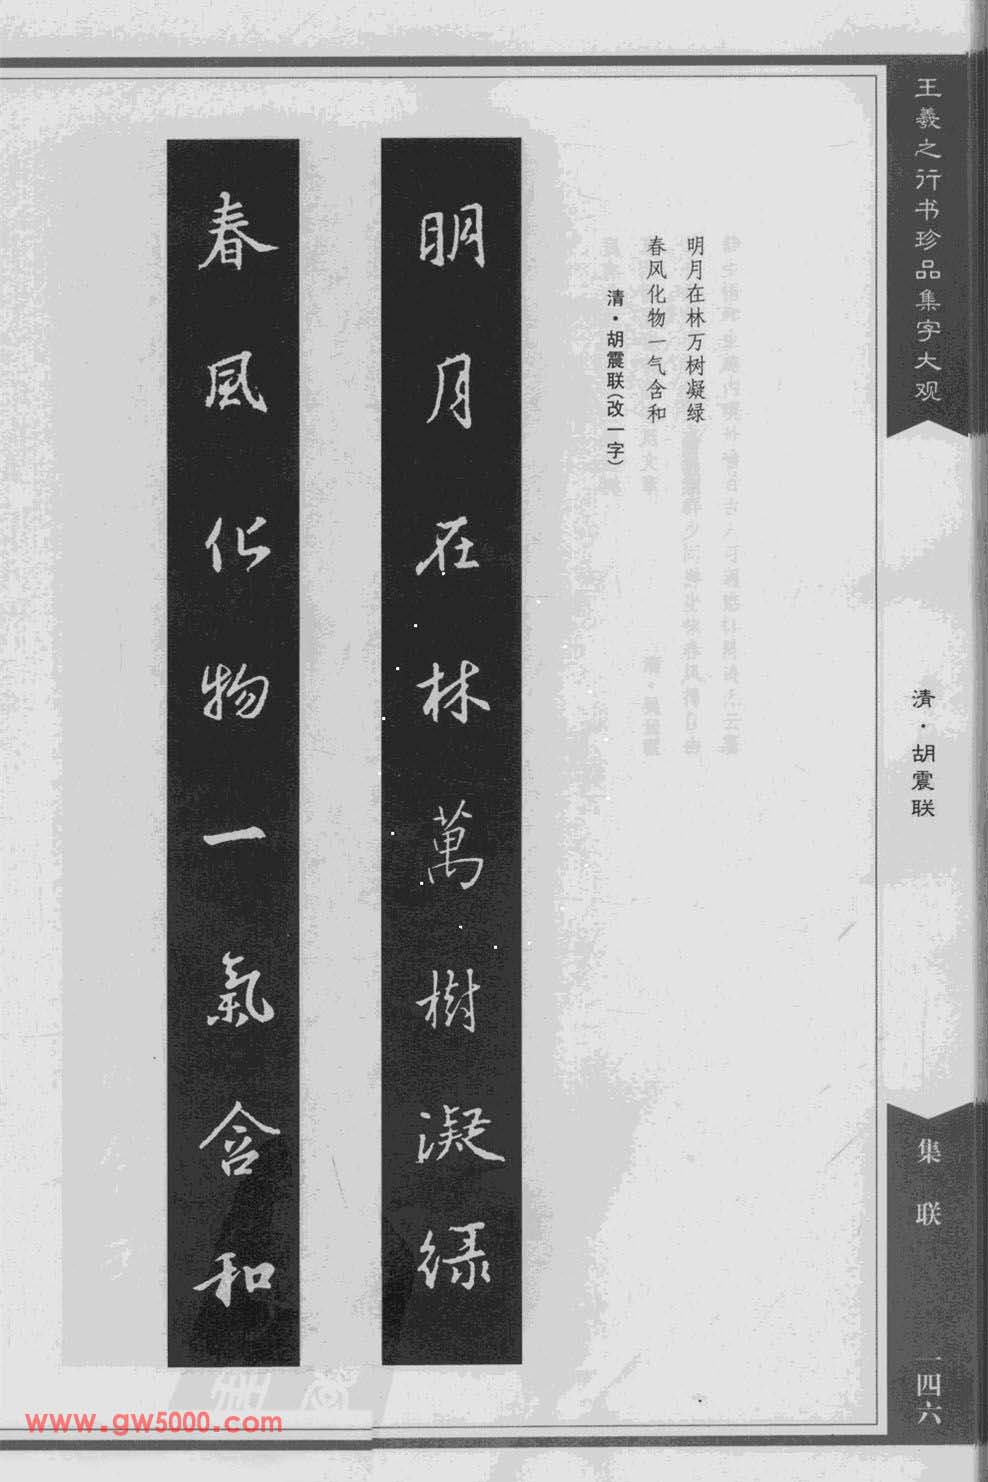 王羲之行书珍品集字大观
清·胡震联
集联
一四六
明月在林万树凝绿
春风化物一气含和
清·胡震联(改一字)
明月在林萬樹凝绿
春風化物一氣含和
www.gw5000.com